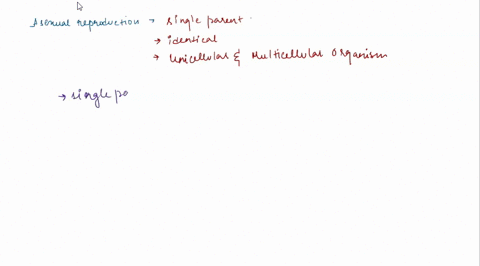 Asexual reproduction → single parent
→ identical
→ Unicellular & Multicellular Organism
→ single pa